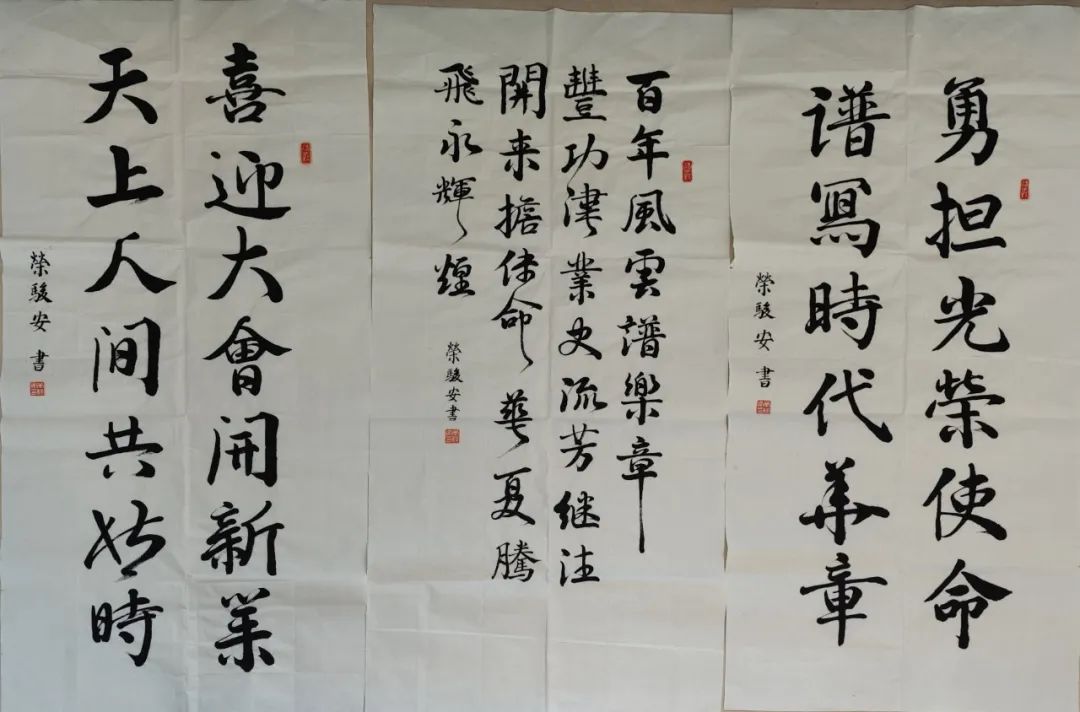 勇担光榮使命
谱寫時代華章
榮駿安 書
百年風雲譜樂章
豐功偉業史流芳继往
開来擔使命華夏騰
飛永輝煌
榮駿安書
喜迎大會開新業
天上人间共此時
榮駿安 書